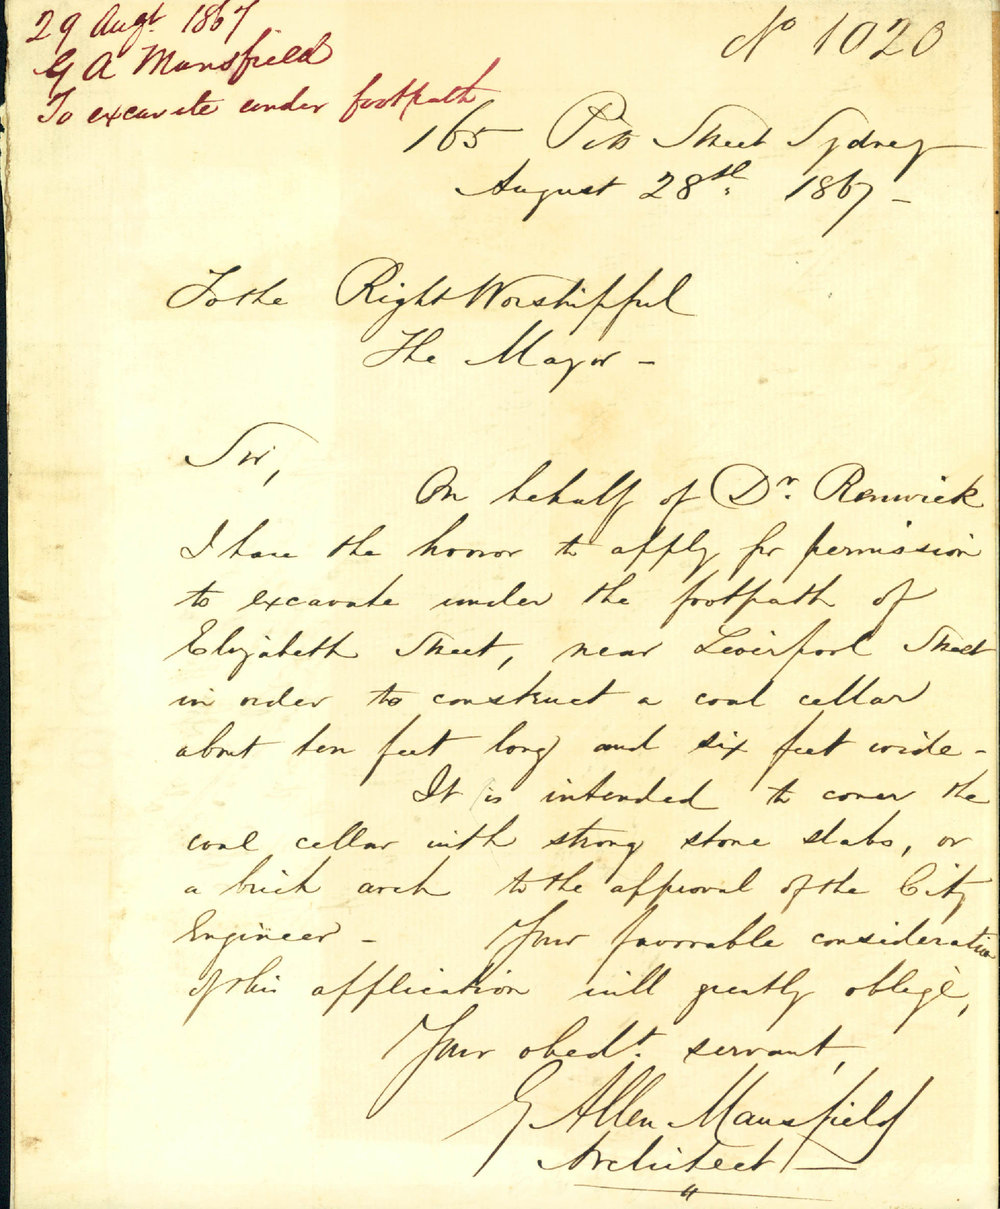 29 Augt. 1867
G A Mansfield
To excavate under footpath
No 1020
165 Pitt Street Sydney
August 28th. 1867 -
To the Right Worshipful
The Mayor -
Sir,
On behalf of Dr. Renwick
I have the honor to apply for permission
to excavate under the footpath of
Elizabeth Street, near Liverpool Street
in order to construct a coal cellar
about ten feet long and six feet wide -
It is intended to cover the
coal cellar with strong stone slabs, or
a brick arch to the approval of the City
Engineer - Your favorable consideration
of this application will greatly oblige,
Your obedt. servant,
G Allen Mansfield
Architect